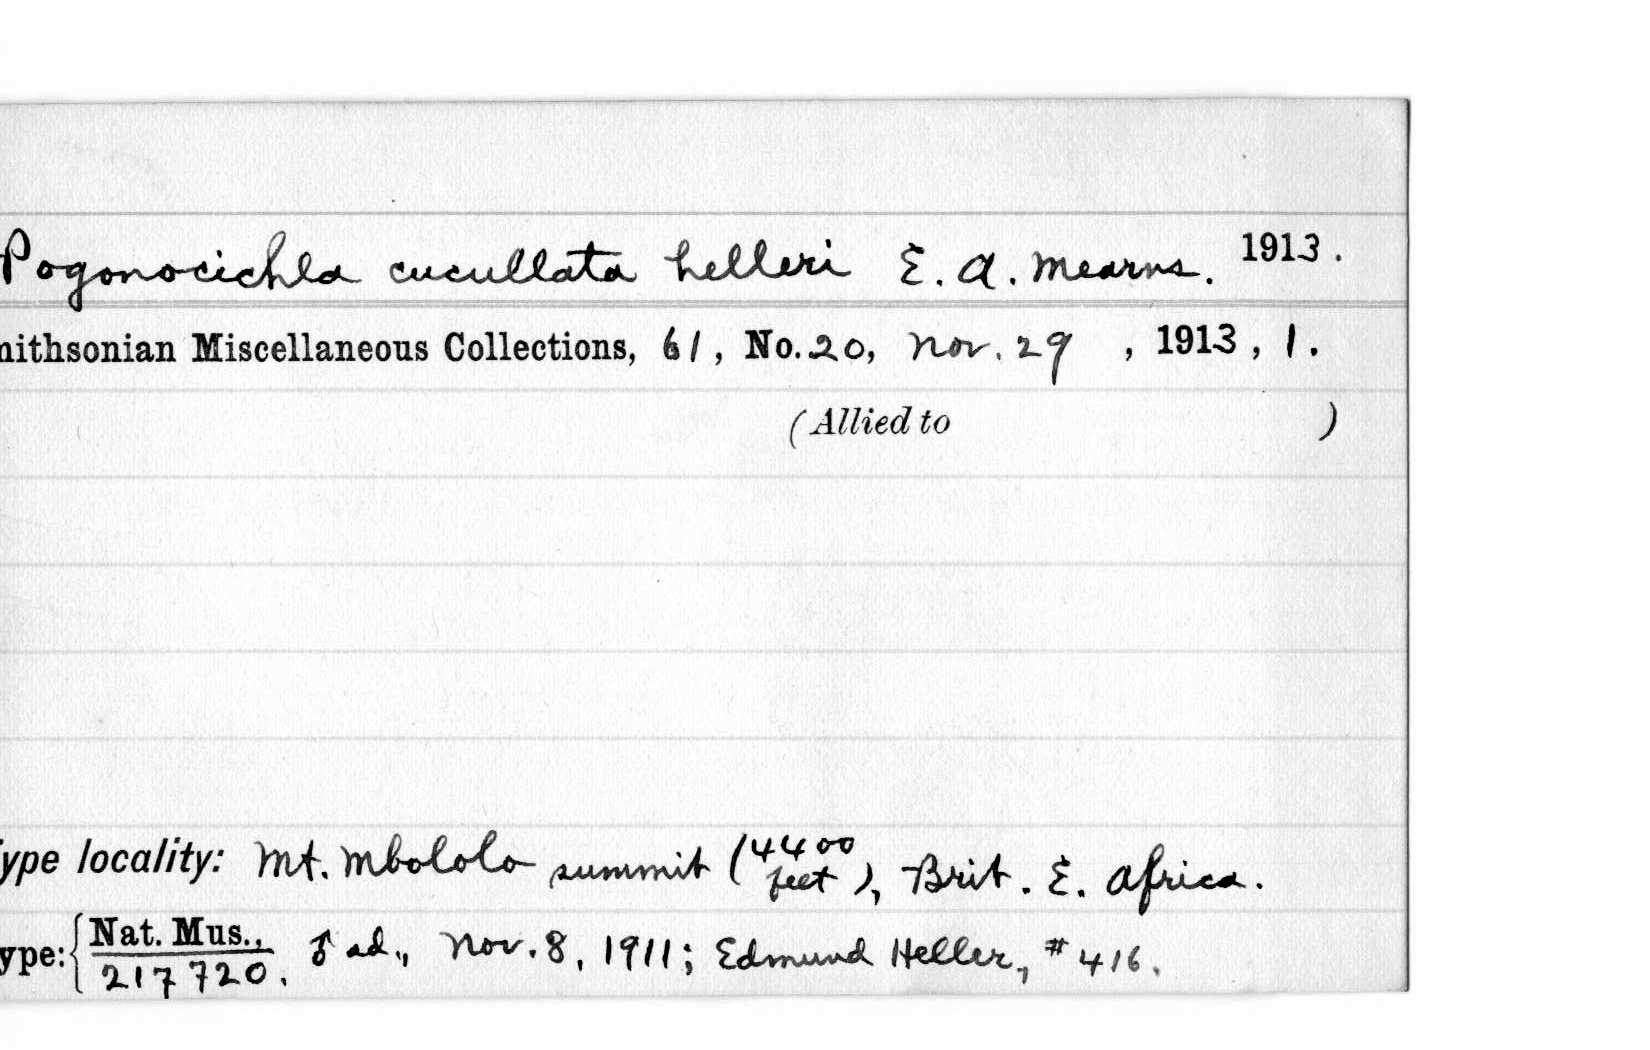 Pogonocichla cucullata helleri E. A. Mearns. 1913.
mithsonian Miscellaneous Collections, 61, No. 20, Nov. 29 , 1913, 1.
(Allied to )
ype locality: Mt. Mbololo summit (4400 feet), Brit. E. Africa.
ype: { Nat. Mus., ♂ ad., Nov. 8, 1911; Edmund Heller, # 416.
217720.